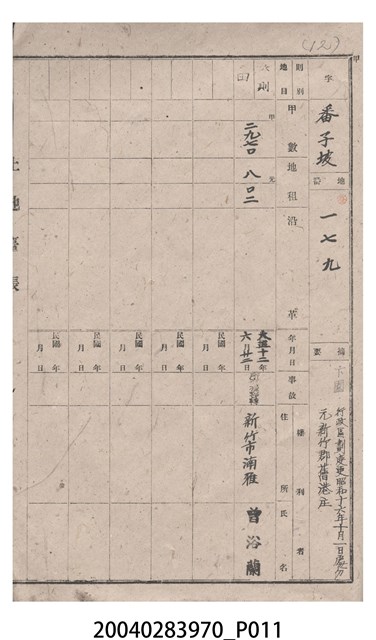 (12)
甲
字 番子坡
地番 一七九
摘要 下圖
行政區劃變更昭和十六年十月一日處分
元新竹郡舊港庄
則別
地目
甲數
地租
沿革
年月日
事故
權利者
住所
氏名
六則
田
甲
二九七〇
元
八〇二
大正十二年
六月廿二日
新竹市湳雅
曾浴蘭
民國 年
月 日
民國 年
月 日
民國 年
月 日
民國 年
月 日
民國 年
月 日
土地臺帳
20040283970_P011